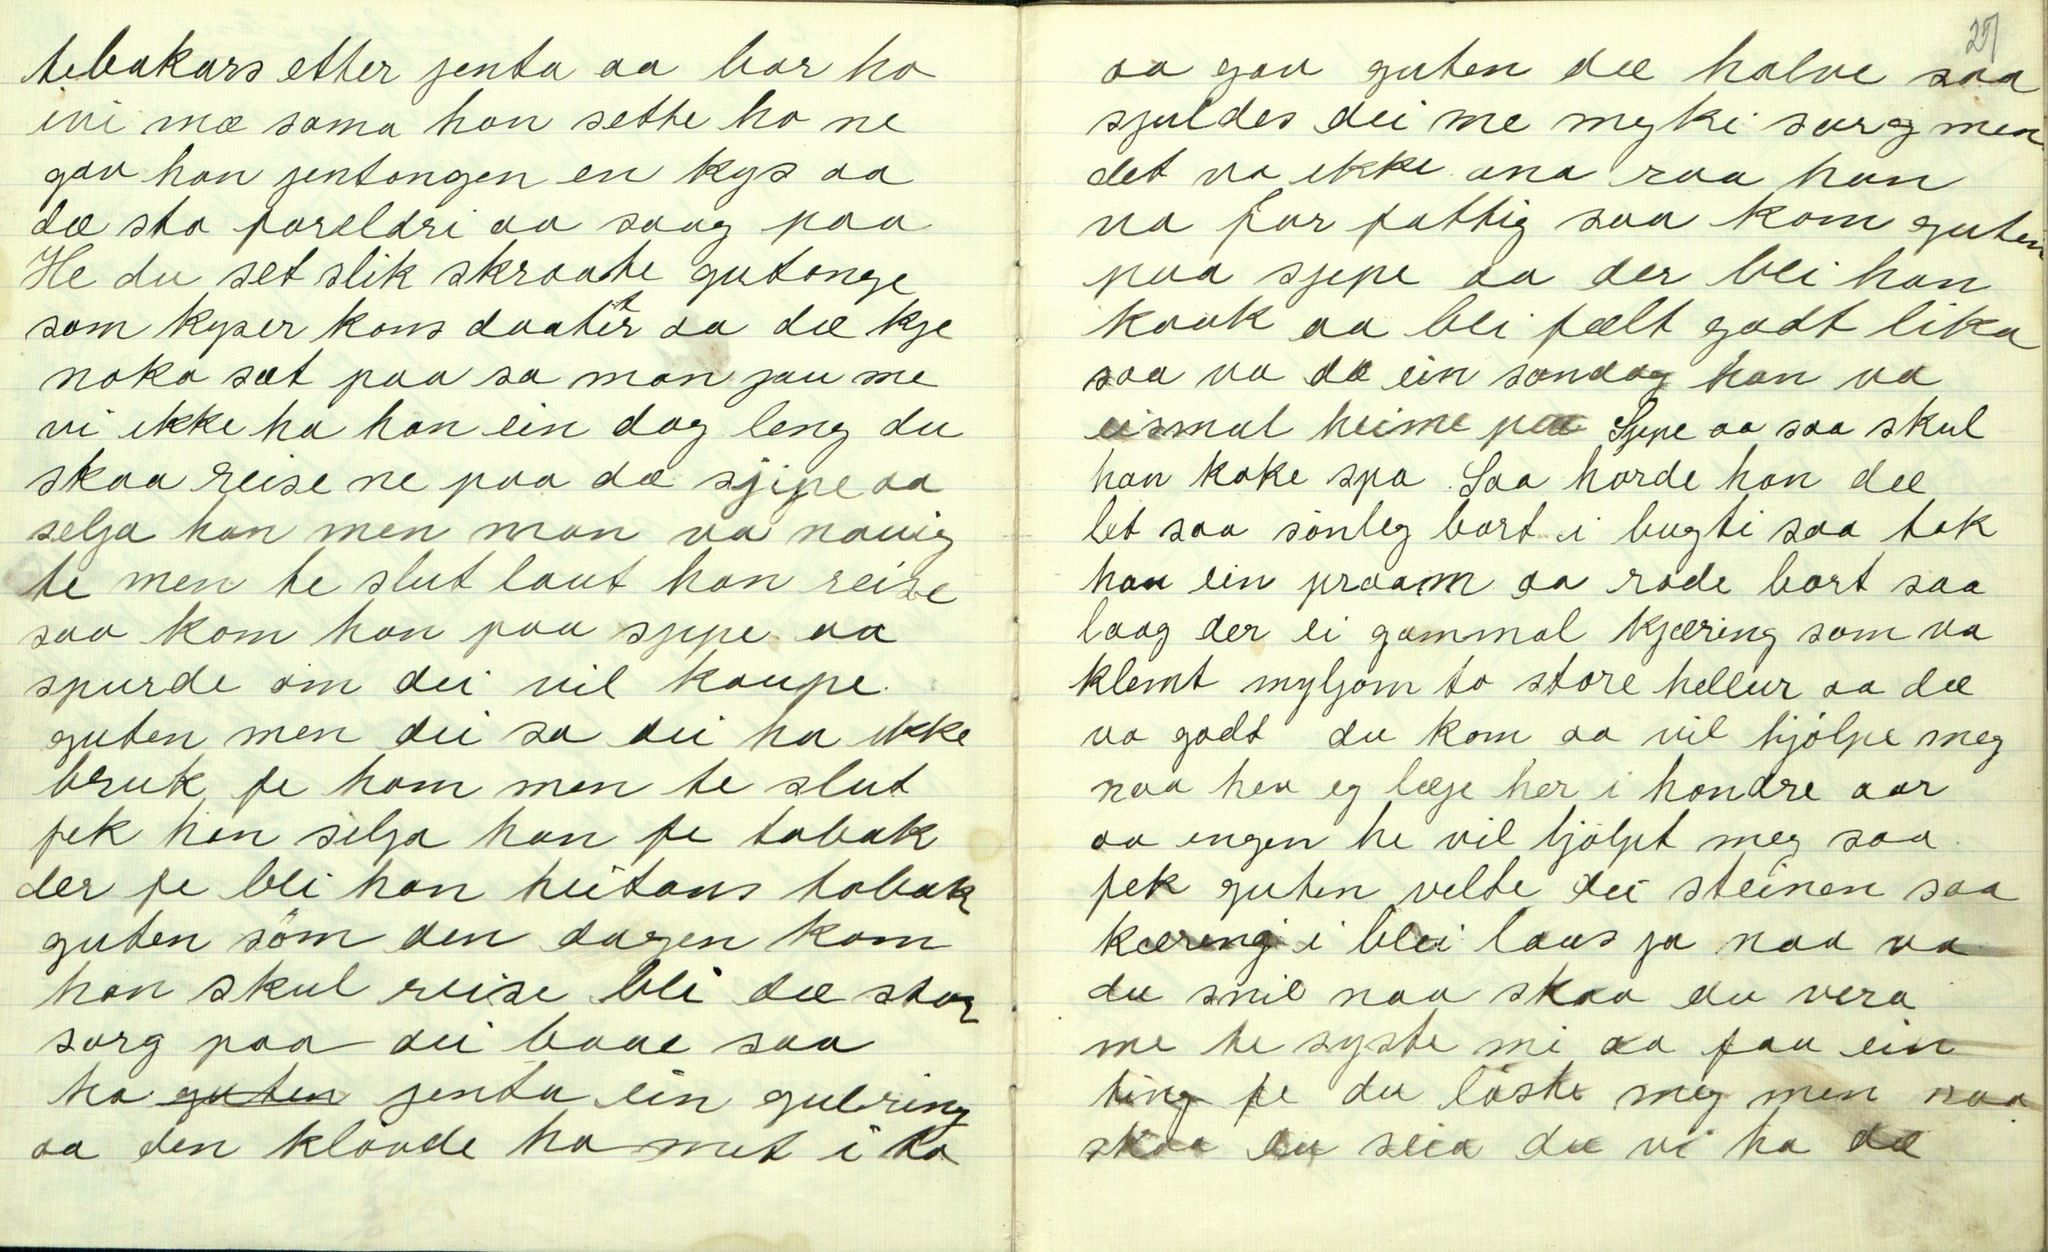 tebakars etter jenta aa bar ho
ivi mæ sama han sette ho ne
gav han jentongen en kys aa
dæ sto foreldri aa saag paa
He du set slik skraate gutonge
som kyser kons daatir aa dæ kje
noko sæt paa sa man jau me
vi ikke ha han ein dag leng du
skaa reise ne paa dæ sjipe aa
selja han men man va nauig
te men te slut laut han reise
saa kom han paa sjepe aa
spurde om dei vil kaupe
guten men dei sa dei ha ikke
bruk fe ham men te slut
fek han selja han fe tobak
der fe blei han heitans tobak
guten som den dagen kom
han skul reise bli dæ stor
sorg paa dei baae saa
ha guten jenta ein gulring
aa den klovde ho mit i to
25
aa gav guten dæ halve saa
sjuldes dei me myki sorg men
det va ikke ana raa han
va for fattig saa kom guten
paa sjepe aa der blei han
kaak aa blei fælt godt lika
saa va dæ ein søndag han va
eismal heime paa Sjepe aa saa skul
han koke spa Saa horde han dæ
let saa sönleg bort i bugti saa tok
han ein praam aa rode bort saa
laag der ei gammal kjæring som va
klemt myljom to store hellur aa dæ
va godt du kom aa vil hjölpe meg
naa hev eg læge her i hondre aar
aa engen he vil hjölpt meg saa
fek guten velte dei steinen saa
kæreng i blei laus ja naa va
du snil naa skaa du vera
me te syste mi aa faa ein
ting fe du löste meg men naa
skaa du seia du vi ha dæ